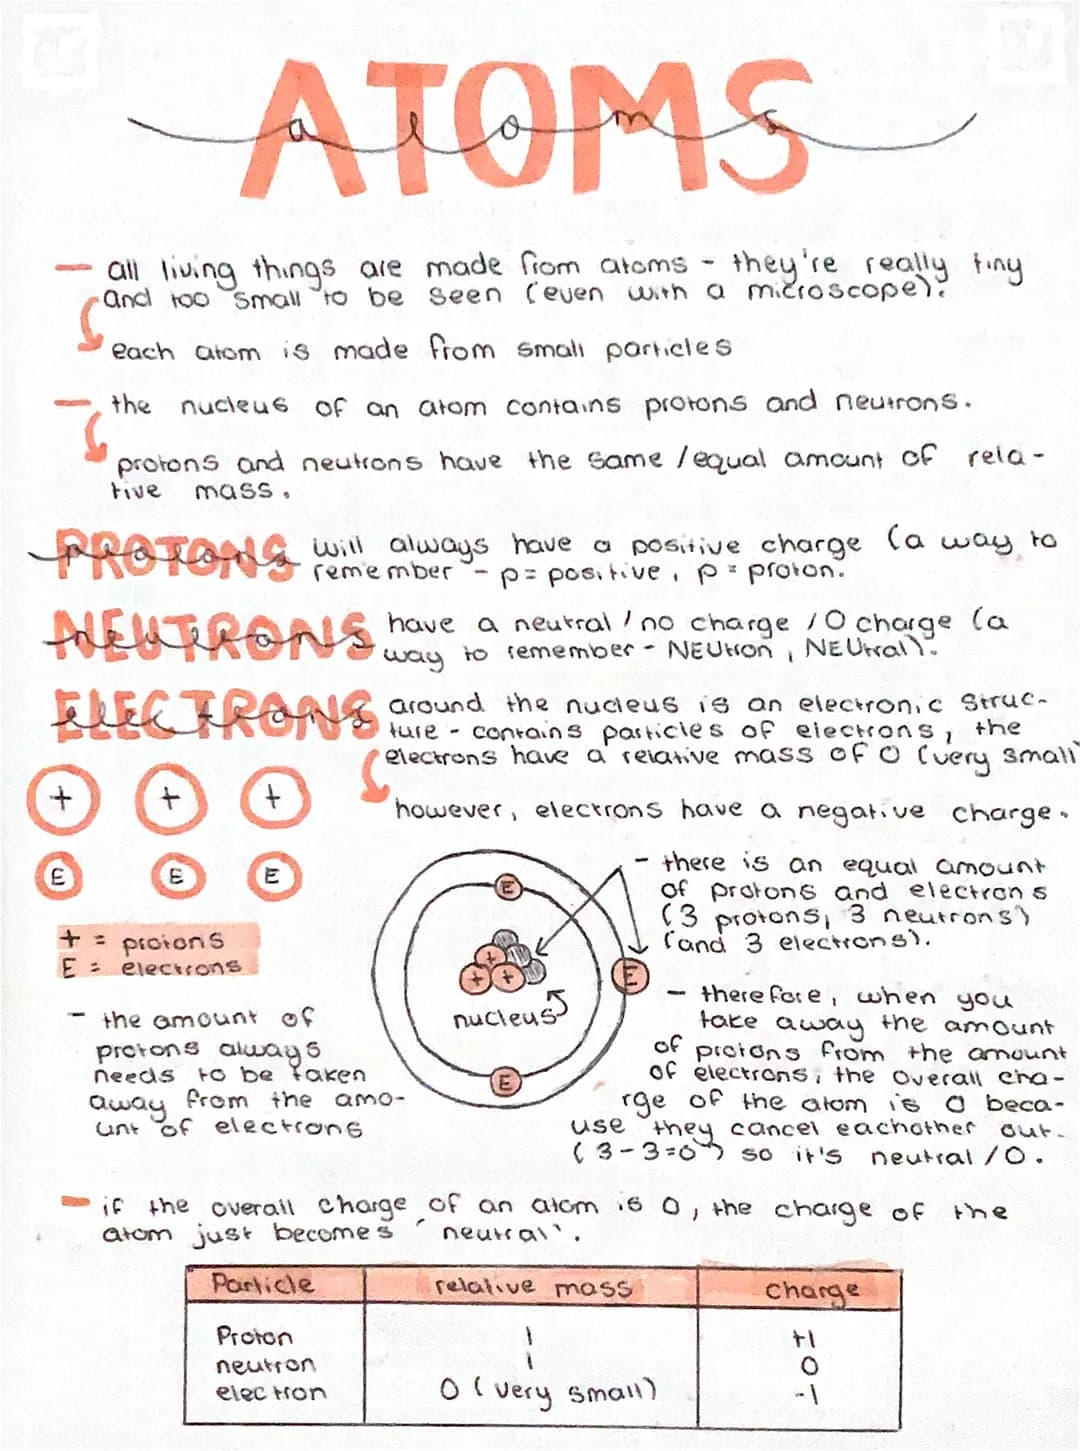 ATOMS
atoms
- all living things are made from atoms - they're really tiny
and too small to be seen (even with a microscope).
each atom is made from small particles
- the nucleus of an atom contains protons and neutrons.
protons and neutrons have the same/equal amount of rela-
tive mass.
PROTONS protons will always have a positive charge (a way to
remember - p = positive, p = proton.
NEUTRONS neutrons have a neutral/no charge/0 charge (a
way to remember - NEUtron, NEUtral).
ELECTRONS electrons around the nucleus is an electronic struc-
ture - contains particles of electrons, the
electrons have a relative mass of 0 (very small
however, electrons have a negative charge.
+ + +
E E E
+ = protons
E = electrons
- the amount of
protons always
needs to be taken
away from the amo-
unt of electrons
E
+
+ +
E
nucleus
E
- there is an equal amount
of protons and electrons
(3 protons, 3 neutrons)
(and 3 electrons).
- therefore, when you
take away the amount
of protons from the amount
of electrons, the overall cha-
rge of the atom is 0 beca-
use they cancel eachother out.
(3-3=0) so it's neutral/0.
- if the overall charge of an atom is 0, the charge of the
atom just becomes 'neutral'.
Particle relative mass charge
Proton 1 +1
neutron 1 0
electron 0 (very small) -1